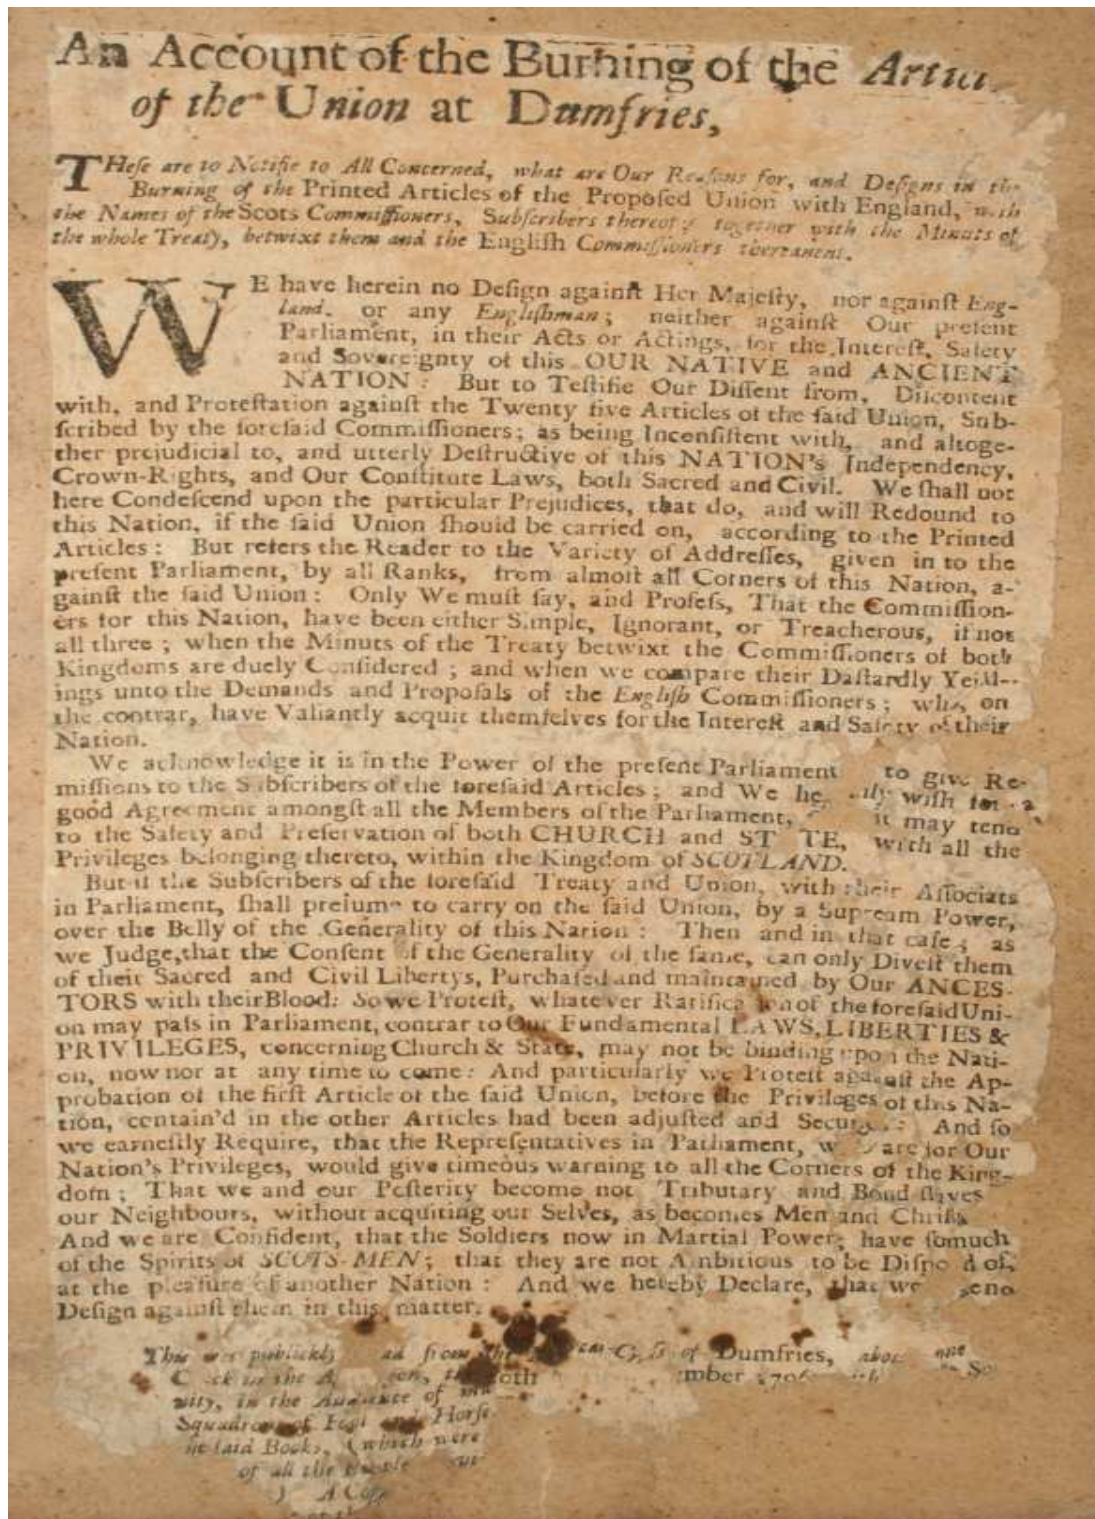 An Account of the Burning of the
of the Union at Dumfries,
THese are to Notifie to All Concerned, what are Our Reasons for, and Designs in the
Burning of the Printed Articles of the Proposed Union with England, with
the Names of the Scots Commissioners, Subscribers thereof; together with the Minuts of
the whole Treaty, betwixt them and the English Commissioners thereanent.
WE have herein no Design against Her Majesty, nor against Eng-
land, or any Englishman; neither against Our present
Parliament, in their Acts or Actings, for the Interest, Safety
and Sovereignty of this OUR NATIVE and ANCIENT
NATION: But to Testifie Our Dissent from, Discontent
with, and Protestation against the Twenty five Articles of the said Union, Sub-
scribed by the foresaid Commissioners; as being Inconsistent with, and altoge-
ther prejudicial to, and utterly Destructive of this NATION's Independency,
Crown-Rights, and Our Constitute Laws, both Sacred and Civil. We shall not
here Condescend upon the particular Prejudices, that do, and will Redound to
this Nation, if the said Union should be carried on, according to the Printed
Articles: But refers the Reader to the Variety of Addresses, given in to the
present Parliament, by all Ranks, from almost all Corners of this Nation, a-
gainst the said Union: Only We must say, and Profess, That the Commission-
ers for this Nation, have been either Simple, Ignorant, or Treacherous, if not
all three; when the Minuts of the Treaty betwixt the Commissioners of both
Kingdoms are duely Considered; and when we compare their Dastardly Yeild-
ings unto the Demands and Proposals of the English Commissioners; who, on
the contrar, have Valiantly acquit themselves for the Interest and Safety of their
Nation.
We acknowledge it is in the Power of the present Parliament to give Re-
missions to the Subscribers of the foresaid Articles; and We wish for a
good Agreement amongst all the Members of the Parliament, it may tend
to the Safety and Preservation of both CHURCH and ST TE, with all the
Privileges belonging thereto, within the Kingdom of SCOTLAND.
But if the Subscribers of the foresaid Treaty and Union, with their Associats
in Parliament, shall presume to carry on the said Union, by a Supream Power,
over the Belly of the Generality of this Nation: Then and in that case; as
we Judge, that the Consent of the Generality of the same, can only Divest them
of their Sacred and Civil Libertys, Purchased and maintained by Our ANCES-
TORS with their Blood: So we Protest, whatever Ratification of the foresaid Uni-
on may pass in Parliament, contrar to Our Fundamental LAWS, LIBERTIES &
PRIVILEGES, concerning Church & State, may not be binding upon the Nati-
on, now nor at any time to come: And particularly we Protest against the Ap-
probation of the first Article of the said Union, before the Privileges of this Na-
tion, contain'd in the other Articles had been adjusted and And so
we earnestly Require, that the Representatives in Parliament, are for Our
Nation's Privileges, would give timeous warning to all the Corners of the King-
dom; That we and our Posterity become not Tributary and Bond slaves
our Neighbours, without acquiting our Selves, as becomes Men and
And we are Confident, that the Soldiers now in Martial Power, have somuch
of the Spirits of SCOTS-MEN; that they are not Ambitious to be of,
at the pleasure of another Nation: And we hereby Declare, that we
Design against them in this matter.
This was publickly from the of Dumfries,
in the Audience of
Squadrons of Foot and Horse
said Books, (which were
of all the People